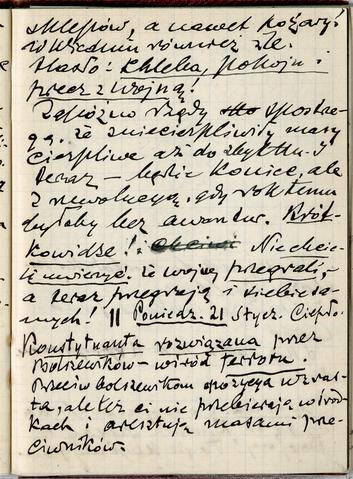 sklepów, a nawet pożary!
W Wiedniu również źle.
Hasło: chleba, pokoju i
precz z wojną!
Zapóźno rządy spostrze-
gą, że zniecierpliwiły masy
cierpliwe aż do zbytku. I
teraz — będzie koniec, ale
z rewolucją, gdy rok temu
byłoby bez awantur. Krót-
kowidze! i Nie chcie-
li wierzyć, że wojnę przegrali,
a teraz przegrają i siebie sa-
mych! || Poniedz. 21 stycz. Ciepło.
Konstytuanta rozwiązana przez
Bolszewików — wśród terroru.
Przeciw bolszewikom opozycja wzras-
ta, ale też ci nie przebierają w środ-
kach i aresztują masami prze-
ciwników.